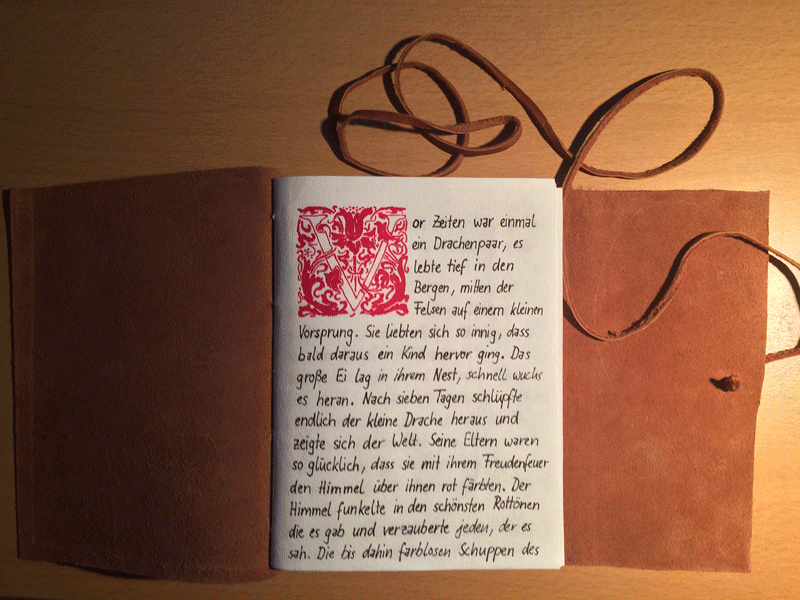 Vor Zeiten war einmal
ein Drachenpaar, es
lebte tief in den
Bergen, mitten der
Felsen auf einem kleinen
Vorsprung. Sie liebten sich so innig, dass
bald daraus ein Kind hervor ging. Das
große Ei lag in ihrem Nest, schnell wuchs
es heran. Nach sieben Tagen schlüpfte
endlich der kleine Drache heraus und
zeigte sich der Welt. Seine Eltern waren
so glücklich, dass sie mit ihrem Freudenfeuer
den Himmel über ihnen rot färbten. Der
Himmel funkelte in den schönsten Rottönen
die es gab und verzauberte jeden, der es
sah. Die bis dahin farblosen Schuppen des